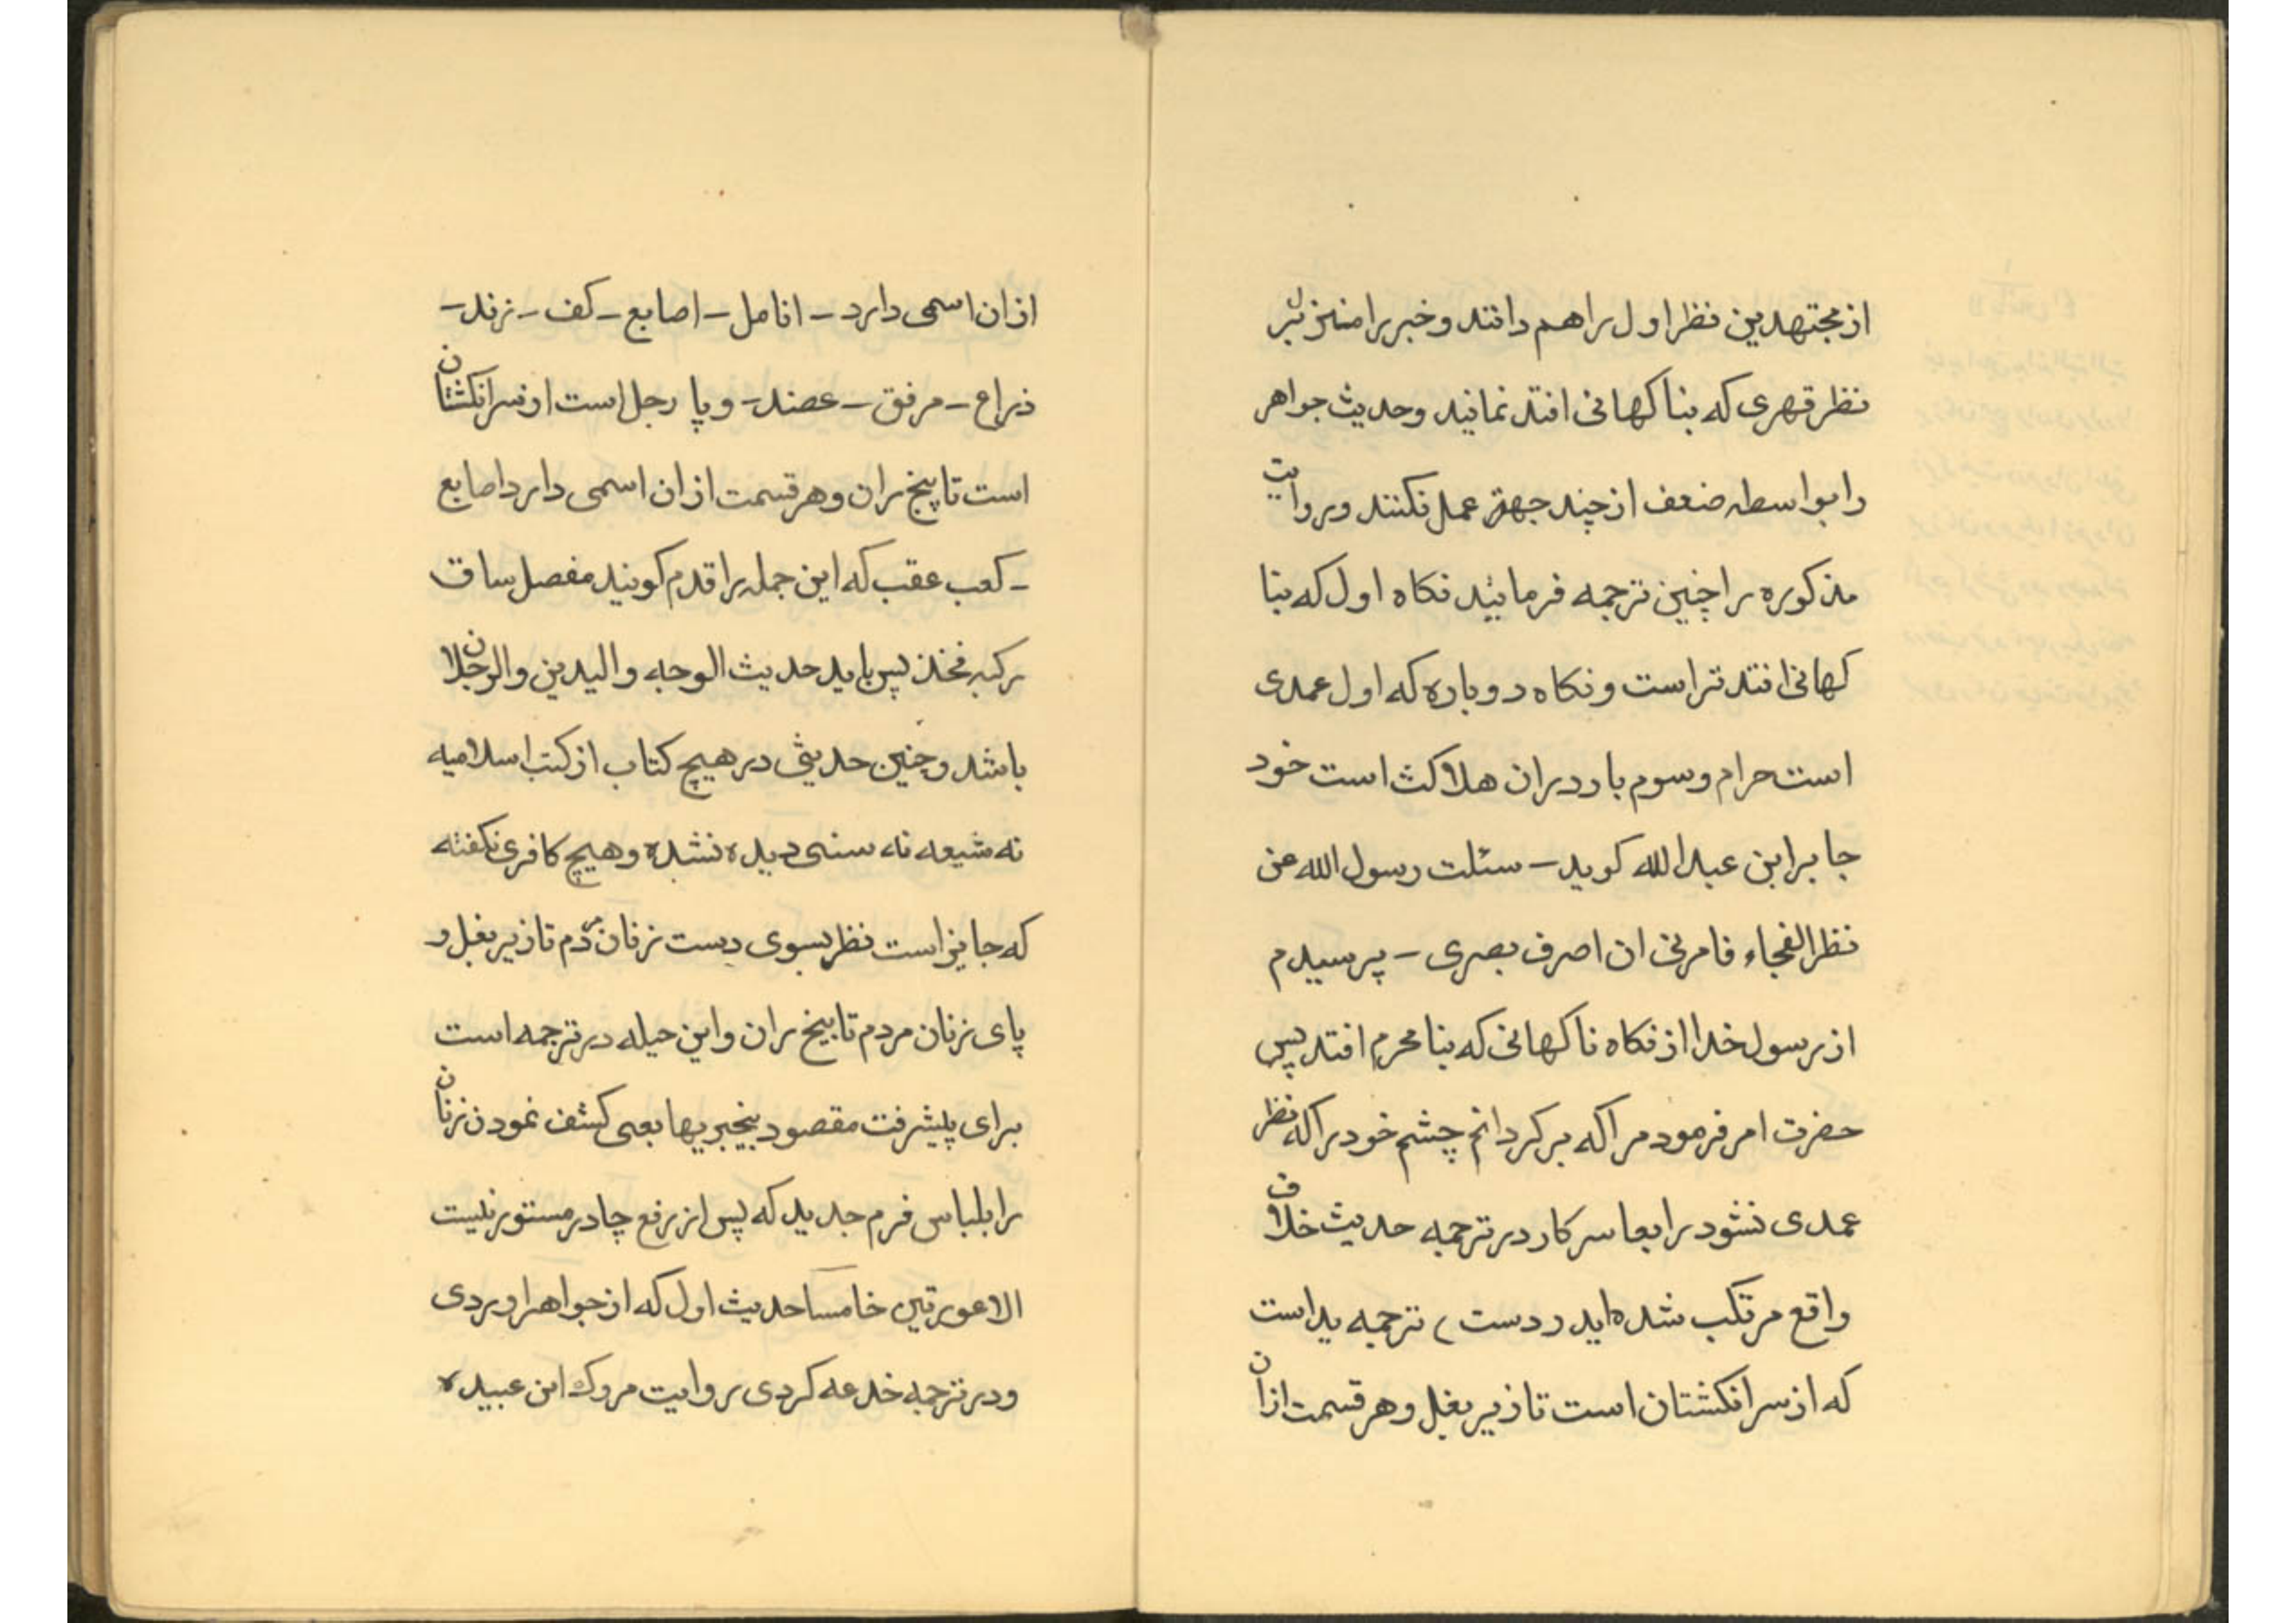 از مجتهدین نظر اول را هم دانند و خبر را منزل بر
نظر قهری که بنا کهانی افتد نمانید و حدیث جواهر
را بواسطه ضعف از چند جهة عمل نکنند و روایت
مذکوره را چنین ترجمه فرمائید نکاه اول که بنا
کهانی افتد تر است و نکاه دوباره که اول عمدی
است حرام و سوم بار در ان هلاکت است خود
جابر ابن عبدالله کوید – سئلت رسول الله عن
نظر الفجاء فامرنی ان اصرف بصری – پرسیدم
از رسول خدا از نکاه ناکهانی که بنا محرم افتد پس
حضرت امر فرمود مرا که بر کردانم چشم خود را که نظر
عمدی نشود رابعا سرکار در ترجمه حدیث خلاف
واقع مرتکب شده اید (دست) ترجمه ید است
که از سر انکشتان است تا زیر بغل و هر قسمت ازان
ازان اسمی دارد – انامل – اصابع – کف – زند –
ذراع – مرفق – عضد – و پا رجل است از سر انکشتان
است تا بیخ ران و هر قسمت ازان اسمی دارد اصابع
– کعب عقب که این جمله را قدم کویند مفصل ساق
رکبه فخذ پس باید حدیث الوجه و الیدین و الرجلان
باشد و چنین حدیثی در هیچ کتاب از کتب اسلامیه
نه شیعه نه سنی دیده نشده و هیچ کافری نکفته
که جایز است نظر بسوی دست زنان مردم تا زیر بغل و
پای زنان مردم تا بیخ ران و این حیله در ترجمه است
برای پیشرفت مقصود بیخبریها بعی کشف نمودن زنان
را بلباس فرم جدید که پس از رفع چادر مستور نیست
الا عورتین خامسا حدیث اول که از جواهر اوردی
و در ترجمه خدعه کردی روایت مروک ابن عبیده